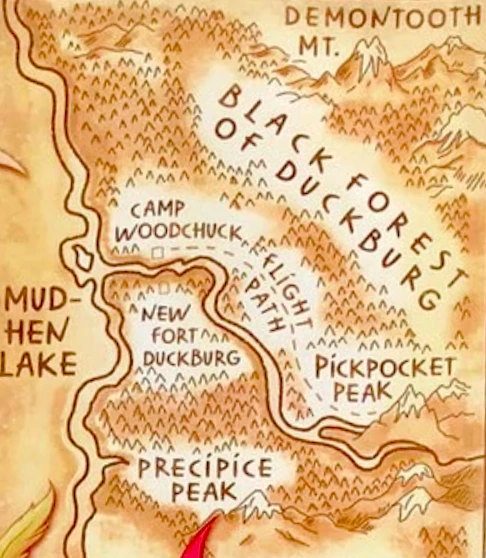 DEMONTOOTH
MT.
BLACK FOREST
OF DUCKBURG
CAMP
WOODCHUCK
FLIGHT
PATH
MUD-
HEN
LAKE
NEW
FORT
DUCKBURG
PICKPOCKET
PEAK
PRECIPICE
PEAK